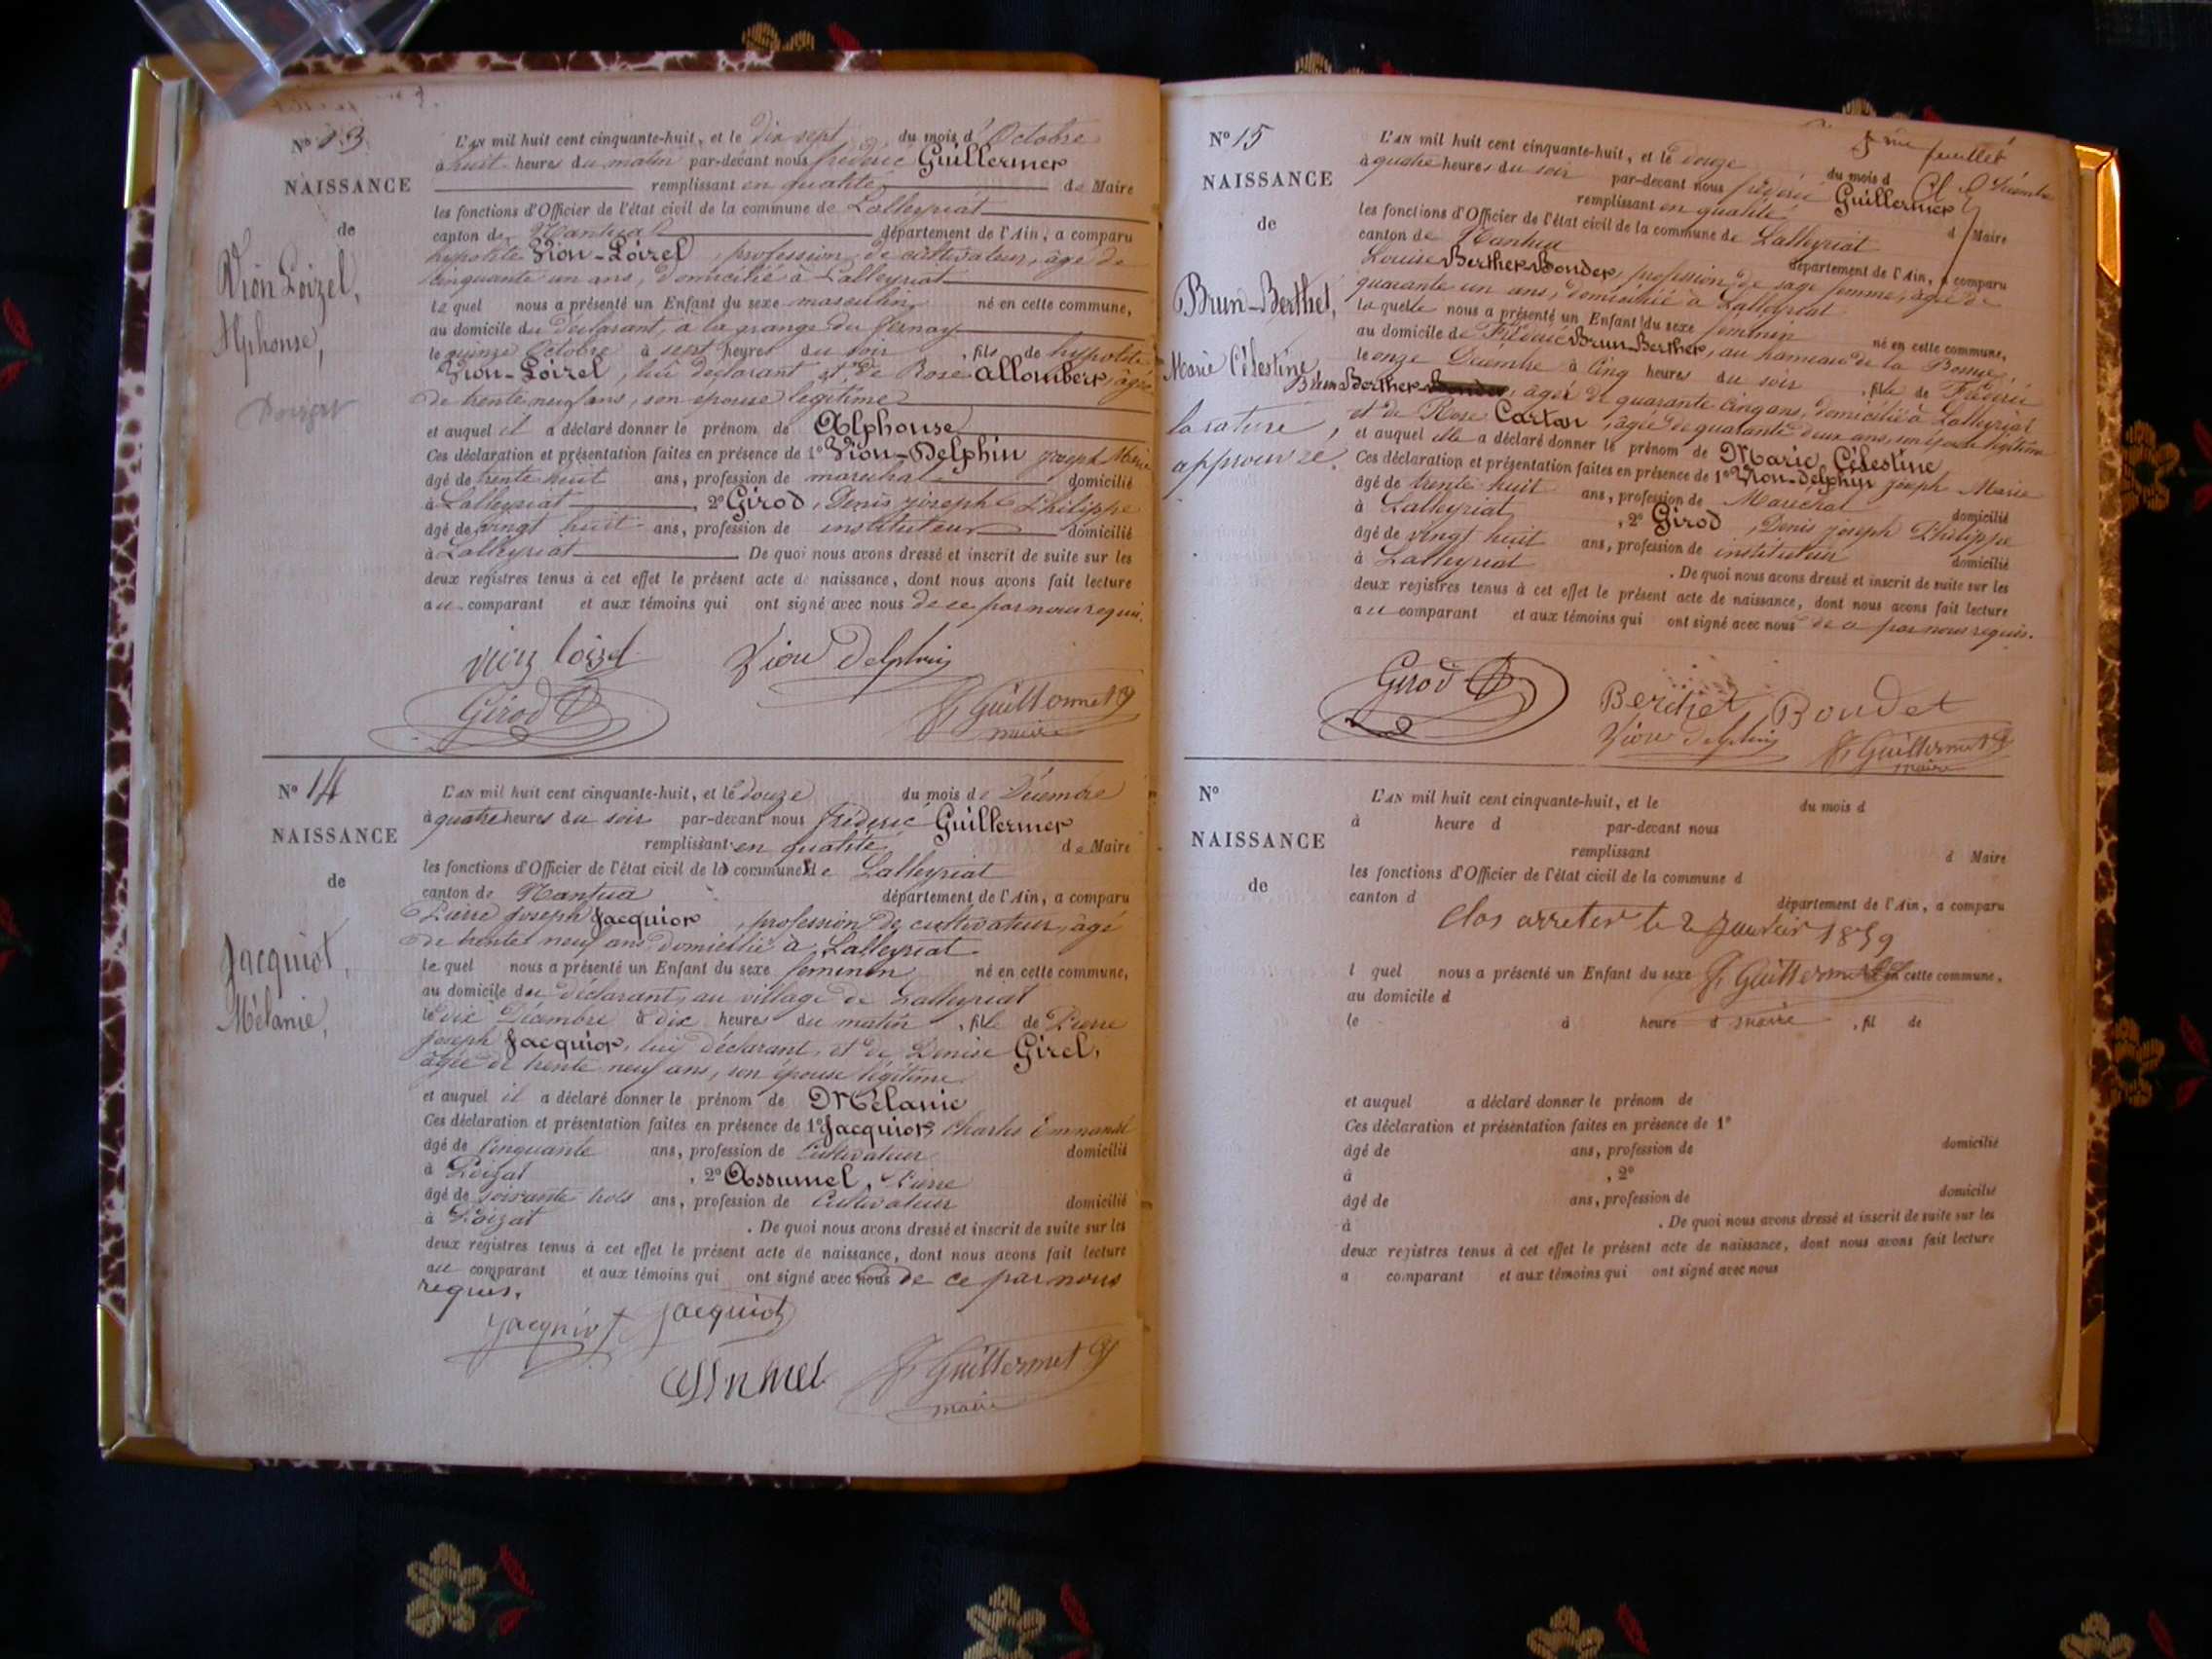 N° 13
NAISSANCE
de
Vion Loizel,
Alphonse,
L'AN mil huit cent cinquante-huit, et le dix sept du mois d'Octobre
à huit heures du matin par-devant nous frédéric Guillermet
remplissant en qualité de Maire
les fonctions d'Officier de l'état civil de la commune de Lalleyriat
canton de Nantua département de l'Ain, a comparu
hypolite Vion-Loizel, profession de cultivateur, âgé de
cinquante un ans, domicilié à Lalleyriat
le quel nous a présenté un Enfant du sexe masculin né en cette commune,
au domicile du declarant, à la grange du fernay
le quinze Octobre à sept heures du soir, fils de hypolite
Vion-Loizel, lui declarant et de Rose Allombert, âgée
de trente neuf ans, son épouse légitime
et auquel il a déclaré donner le prénom de Alphonse
Ces déclaration et présentation faites en présence de 1° Vion-Delphin Joseph Marie
âgé de trente huit ans, profession de marechal domicilié
à Lalleyriat, 2° Girod, Denis joseph Philippe
âgé de vingt huit ans, profession de instituteur domicilié
à Lalleyriat. De quoi nous avons dressé et inscrit de suite sur les
deux registres tenus à cet effet le présent acte de naissance, dont nous avons fait lecture
au comparant et aux témoins qui ont signé avec nous de ce par nous requis.
vion loizel Vion Delphin
Girod F. Guillermet
maire
N° 14
NAISSANCE
de
Jacquiot,
Mélanie,
L'AN mil huit cent cinquante-huit, et le douze du mois de Décembre
à quatre heures du soir par-devant nous frédéric Guillermet
remplissant en qualité de Maire
les fonctions d'Officier de l'état civil de la commune de Lalleyriat
canton de Nantua département de l'Ain, a comparu
Pierre Joseph Jacquiot, profession de cultivateur, âgé
de trente neuf ans domicilié à Lalleyriat
le quel nous a présenté un Enfant du sexe feminin né en cette commune,
au domicile du déclarant, au village de Lalleyriat
le dix Décembre à dix heures du matin, fille de Pierre
Joseph Jacquiot, lui déclarant, et de Denise Girel,
âgée de trente neuf ans, son épouse légitime
et auquel il a déclaré donner le prénom de Mélanie
Ces déclaration et présentation faites en présence de 1° Jacquiot, Charles Emmanuel
âgé de Cinquante ans, profession de Cultivateur domicilié
à Poizat, 2° Assumel, Pierre
âgé de soixante trois ans, profession de Cultivateur domicilié
à Poizat. De quoi nous avons dressé et inscrit de suite sur les
deux registres tenus à cet effet le présent acte de naissance, dont nous avons fait lecture
au comparant et aux témoins qui ont signé avec nous de ce par nous
requis.
Jacquiot Jacquiot
F. Guillermet
maire
5me feuillet
N° 15
NAISSANCE
de
Brun-Berthet,
Marie Célestine
la rature
approuvée.
L'AN mil huit cent cinquante-huit, et le douze du mois d Décembre
à quatre heures du soir par-devant nous frédéric Guillermet
remplissant en qualité d Maire
les fonctions d'Officier de l'état civil de la commune de Lalleyriat
canton de Nantua département de l'Ain, a comparu
Louise Berthet-Bondet, profession de sage femme, âgée de
quarante un ans, domiciliée à Lalleyriat
la quelle nous a présenté un Enfant du sexe féminin né en cette commune,
au domicile de Frédéric Brun-Berthet, au hameau de la
le onze Décembre à Cinq heures du soir, fille de Fréderic
Brun Berthet, âgé de quarante Cinq ans, domicilié à Lalleyriat
et de Rose Carton, âgée de quarante deux ans, son épouse légitime
et auquel elle a déclaré donner le prénom de Marie Célestine
Ces déclaration et présentation faites en présence de 1° Vion-Delphin Joseph Marie
âgé de trente huit ans, profession de Maréchal domicilié
à Lalleyriat, 2° Girod, Denis Joseph Philippe
âgé de vingt huit ans, profession de instituteur domicilié
à Lalleyriat. De quoi nous avons dressé et inscrit de suite sur les
deux registres tenus à cet effet le présent acte de naissance, dont nous avons fait lecture
au comparant et aux témoins qui ont signé avec nous de ce par nous requis.
Girod Berthet Bondet
Vion Delphin F. Guillermet
maire
N°
NAISSANCE
de
L'AN mil huit cent cinquante-huit, et le du mois d
à heure d par-devant nous
remplissant d Maire
les fonctions d'Officier de l'état civil de la commune d
canton d département de l'Ain, a comparu
Clos arreter le 2 Janvier 1859
l quel nous a présenté un Enfant du sexe F. Guillermet né en cette commune,
au domicile d
le à heure d maire, fil de
et auquel a déclaré donner le prénom de
Ces déclaration et présentation faites en présence de 1°
âgé de ans, profession de domicilié
à , 2°
âgé de ans, profession de domicilié
à . De quoi nous avons dressé et inscrit de suite sur les
deux registres tenus à cet effet le présent acte de naissance, dont nous avons fait lecture
a comparant et aux témoins qui ont signé avec nous